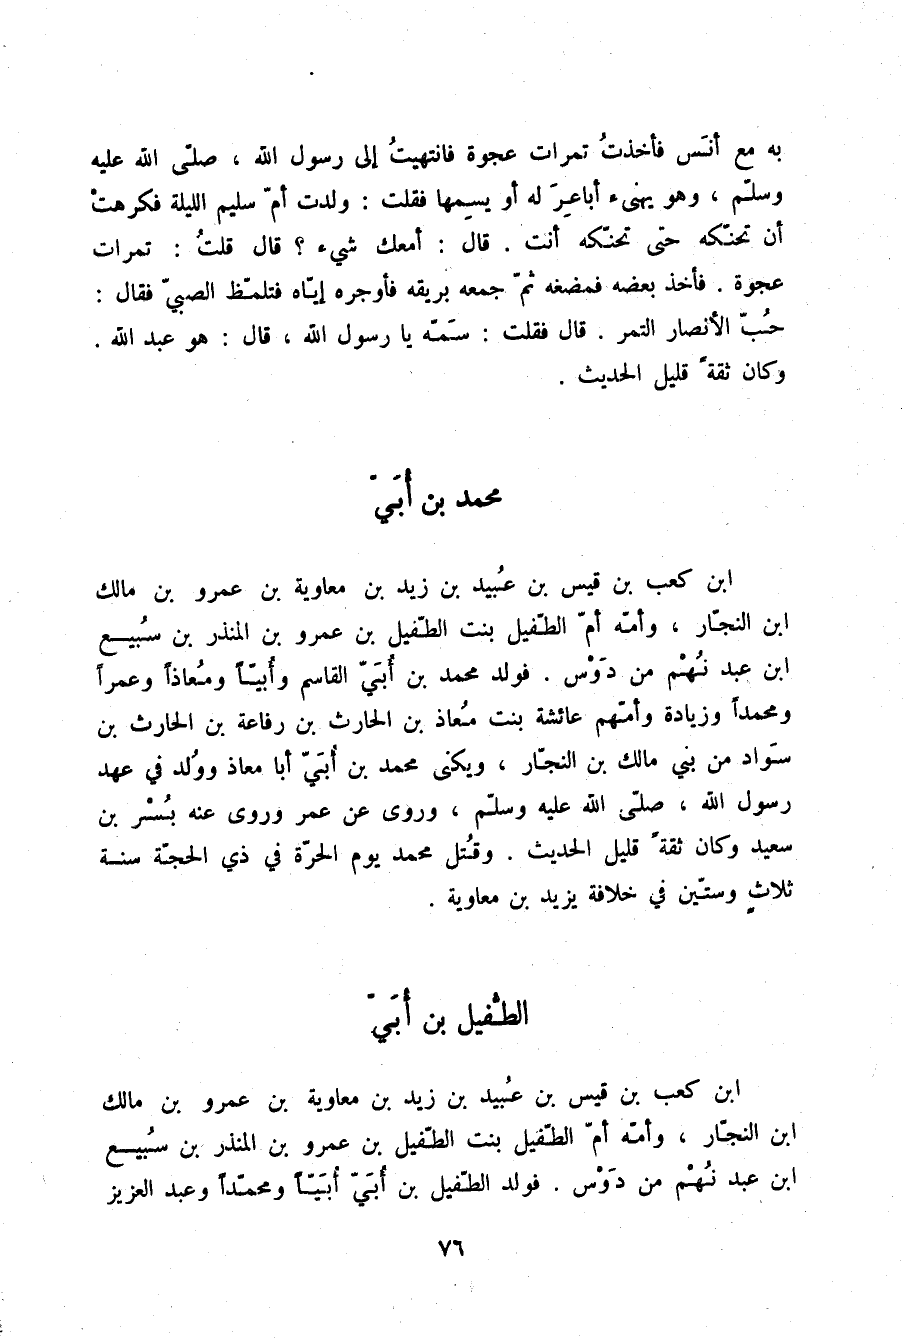 به مع أنَس فأخذتُ تمرات عجوة فانتهيتُ إلى رسول الله ، صلّى الله عليه
وسلّم ، وهو يهنىء أباعِرَ له أو يسِمها فقلت : ولدت أمّ سليم الليلة فكرهتْ
أن تحنّكه حتى تحنّكه أنت . قال : أمعك شيء ؟ قال قلتُ : تمرات
عجوة . فأخذ بعضه فمضغه ثمّ جمعه بريقه فأوجره إيّاه فتلمّظ الصبيّ فقال :
حُبّ الأنصار التمر . قال فقلت : سَمّه يا رسول الله ، قال : هو عبد الله .
وكان ثقةً قليل الحديث .
محمد بن أُبَيّ
ابن كعب بن قيس بن عُبيد بن زيد بن معاوية بن عمرو بن مالك
ابن النجّار ، وأمّه أمّ الطّفيل بنت الطّفيل بن عمرو بن المنذر بن سُبيـــع
ابن عبد نُهْم من دَوْس . فولد محمد بن أُبَيّ القاسم وأُبيّاً ومُعاذاً وعمراً
ومحمداً وزيادة وأمّهم عائشة بنت مُعاذ بن الحارث بن رفاعة بن الحارث بن
سَواد من بني مالك بن النجّار ، ويكنى محمد بن أُبَيّ أبا معاذ ووُلد في عهد
رسول الله ، صلّى الله عليه وسلّم ، وروى عن عمر وروى عنه بُسْر بن
سعيد وكان ثقةً قليل الحديث . وقُتل محمد يوم الحرّة في ذي الحجّة سنـة
ثلاثٍ وستّين في خلافة يزيد بن معاوية .
الطّفيل بن أُبَيّ
ابن كعب بن قيس بن عُبيد بن زيد بن معاوية بن عمرو بن مالك
ابن النجّار ، وأمّه أمّ الطّفيل بنت الطّفيل بن عمرو بن المنذر بن سُبيـــع
ابن عبد نُهْم من دَوْس . فولد الطّفيل بن أُبَيّ أُبَيّاً ومحمّداً وعبد العزيز
٧٦